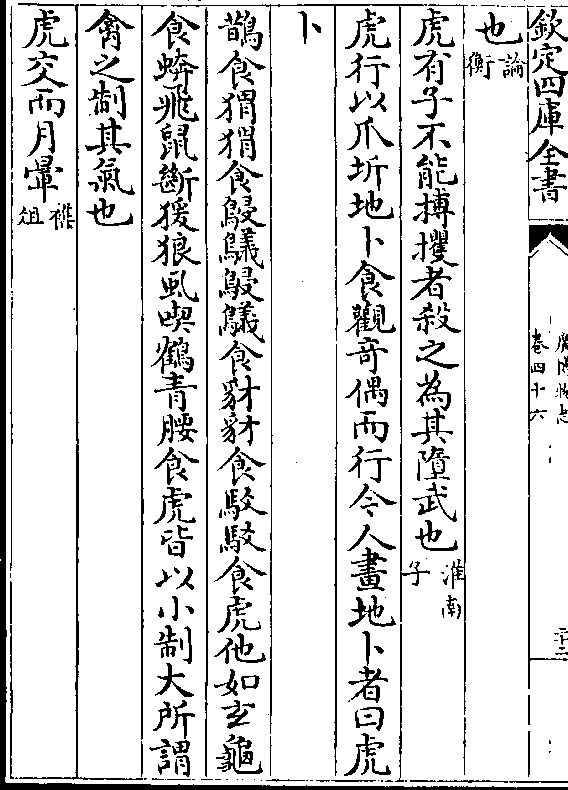 欽定四庫全書
廣博物志
卷四十六
也論衡
虎有子不能搏攫者殺之為其墮武也淮南子
虎行以爪坼地卜食觀奇偶而行今人畫地卜者曰虎
卜
鵲食猬猬食鵕鸃鵕鸃食豺豺食駮駮食虎他如玄龜
食蟒飛鼠斷猨狼虱喫鶴青腰食虎皆以小制大所謂
禽之制其氣也
虎交而月暈襍俎